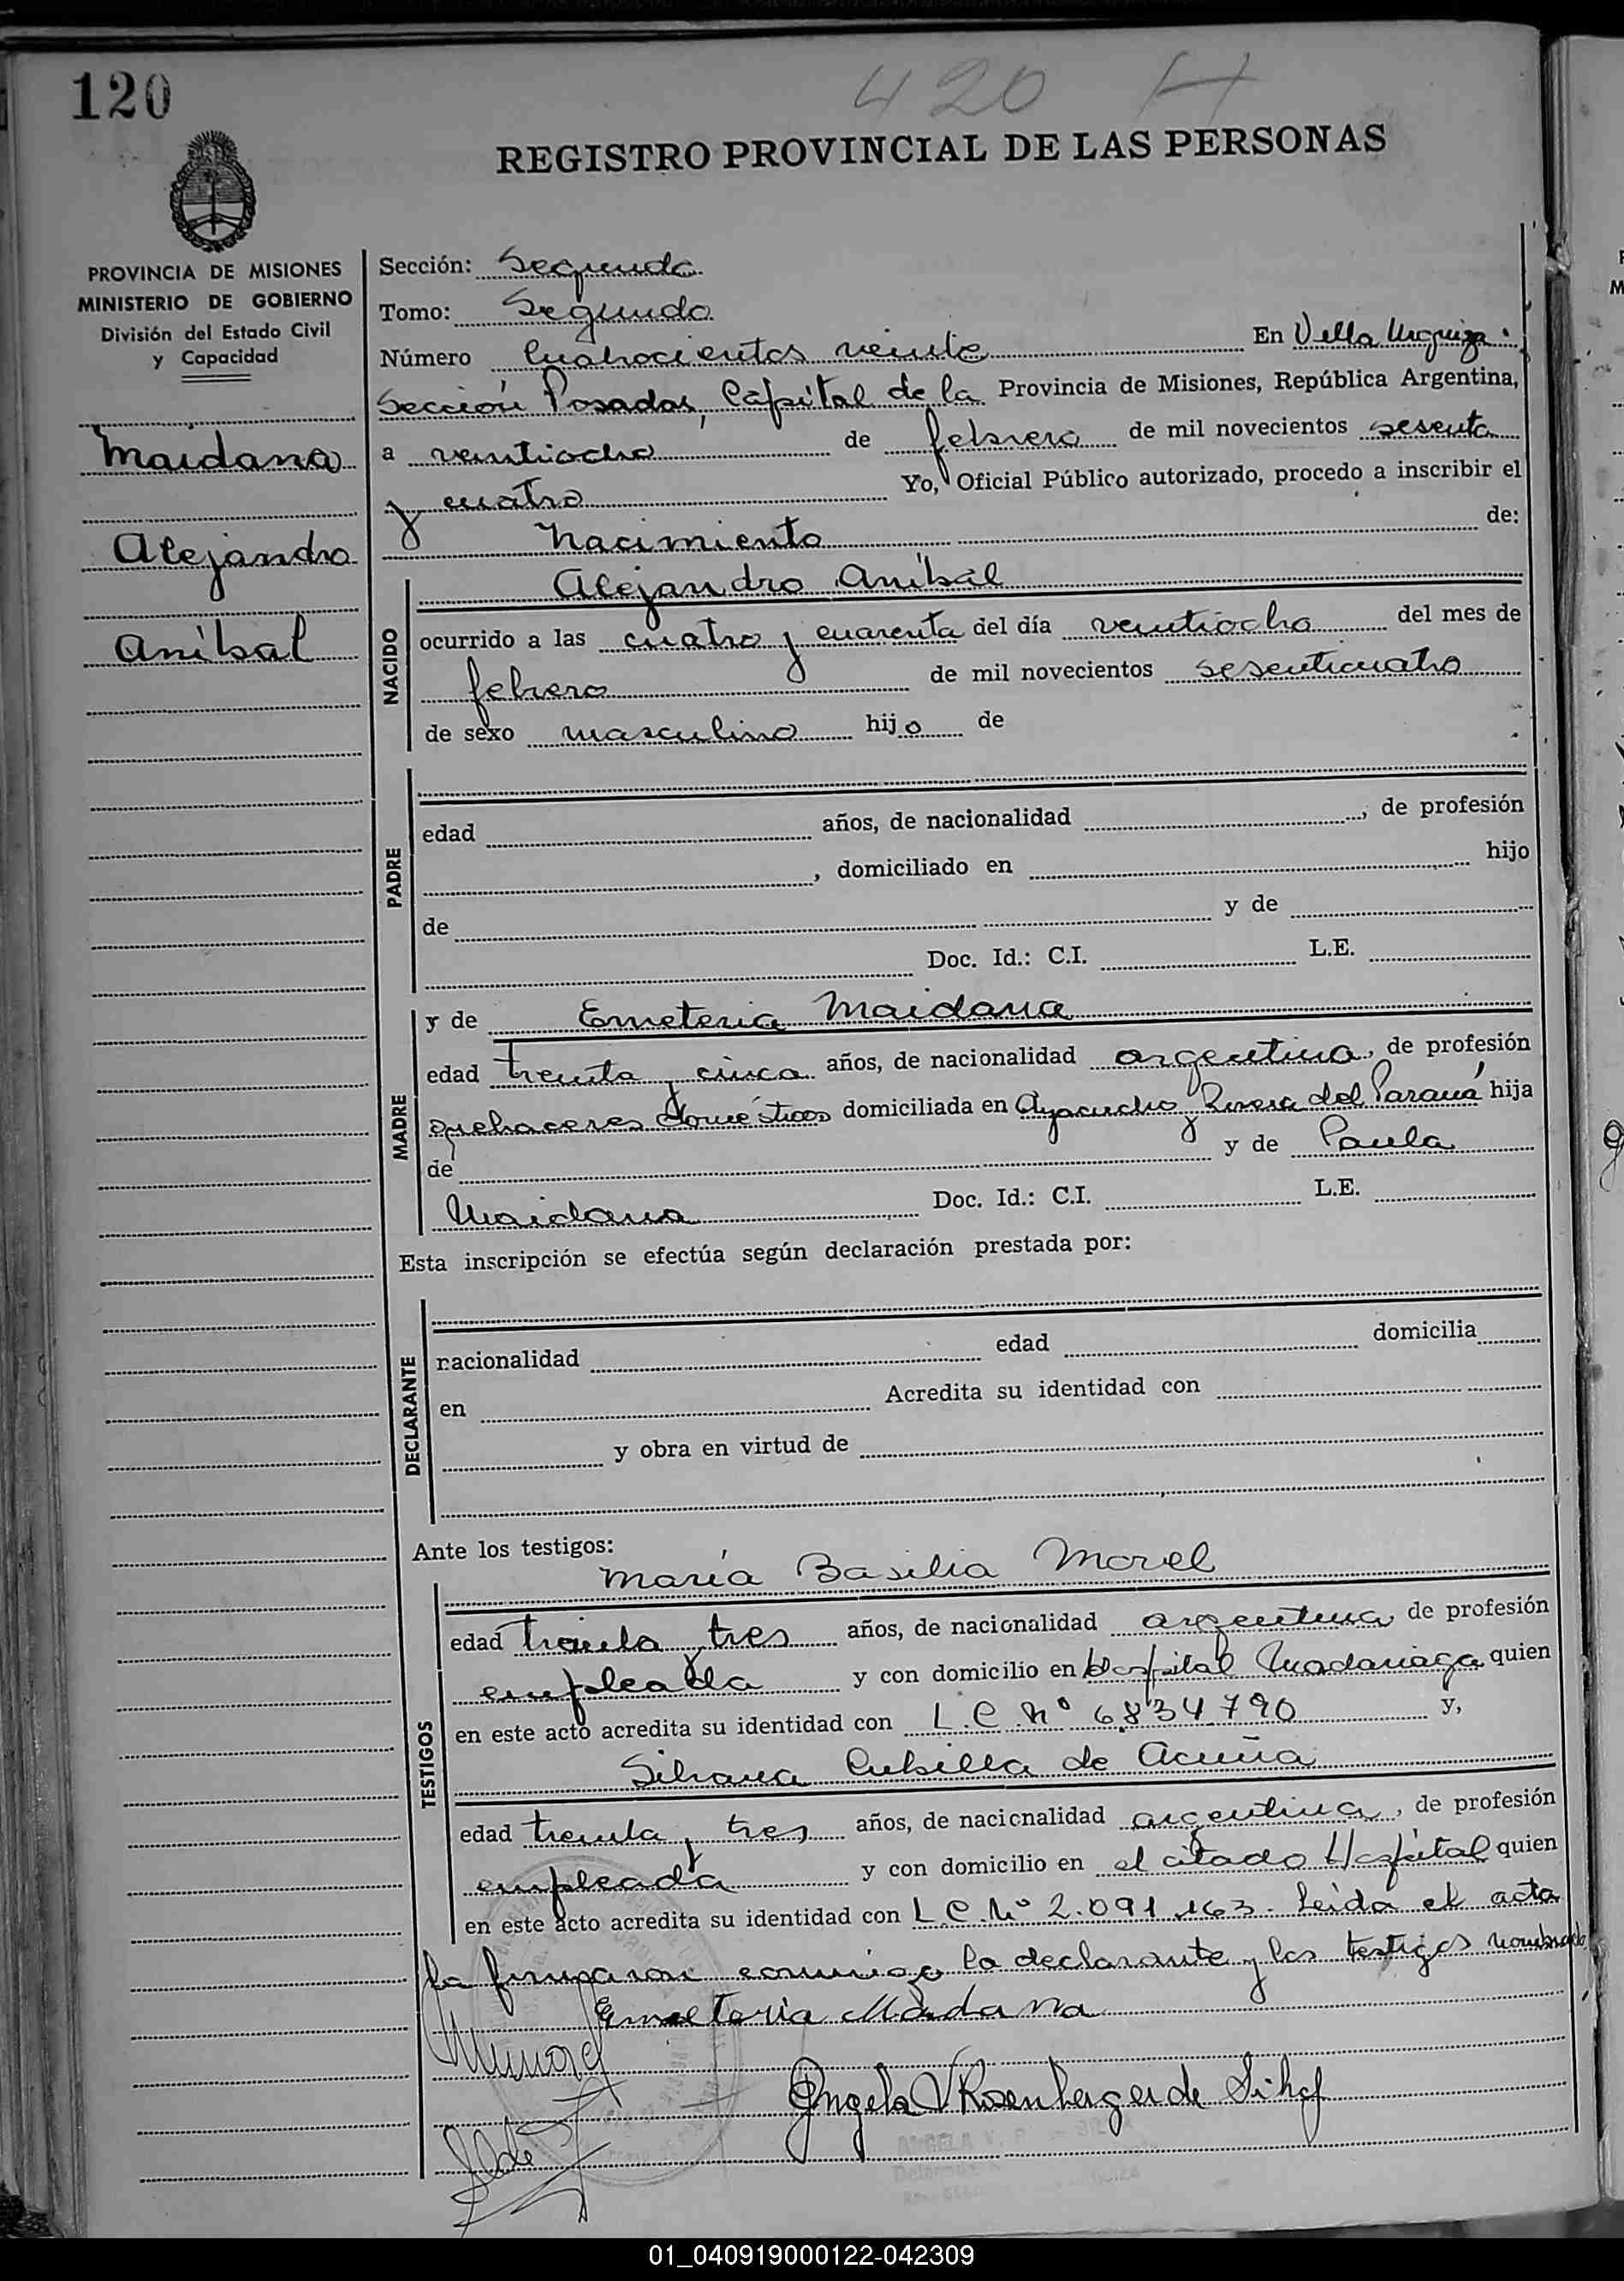 120
420 H
REGISTRO PROVINCIAL DE LAS PERSONAS
PROVINCIA DE MISIONES
MINISTERIO DE GOBIERNO
División del Estado Civil
y Capacidad
Maidana
Alejandro
Anibal
Sección: Segunda
Tomo: Segundo
Número Cuatrocientos veinte En Villa Urquiza
Sección Posadas, Capital de la Provincia de Misiones, República Argentina,
a ventiocho de febrero de mil novecientos sesenta
y cuatro Yo, Oficial Público autorizado, procedo a inscribir el
Nacimiento de:
NACIDO
Alejandro Anibal
ocurrido a las cuatro y cuarenta del día ventiocho del mes de
febrero de mil novecientos sesenticuatro
de sexo masculino hijo de
PADRE
edad años, de nacionalidad , de profesión
, domiciliado en hijo
de y de
Doc. Id.: C.I. L.E.
MADRE
y de Emeteria Maidana
edad treinta y cinco años, de nacionalidad argentina, de profesión
quehaceres domésticos domiciliada en Ayacucho y Rivera del Paraná hija
de y de Paula
Maidana Doc. Id.: C.I. L.E.
Esta inscripción se efectúa según declaración prestada por:
DECLARANTE
nacionalidad edad domicilia
en Acredita su identidad con
y obra en virtud de
Ante los testigos:
TESTIGOS
María Basilia Morel
edad treinta y tres años, de nacionalidad argentina de profesión
empleada y con domicilio en Hospital Madariaga quien
en este acto acredita su identidad con L.C. Nº 6834790 y,
Silvana Cubilla de Acuña
edad treinta y tres años, de nacionalidad argentina, de profesión
empleada y con domicilio en el citado Hospital quien
en este acto acredita su identidad con L.C. Nº 2.091.163. Leida el acta
la firmaron conmigo la declarante y los testigos
Emeteria Maidana
Angela V Rosenberger de
01_040919000122-042309